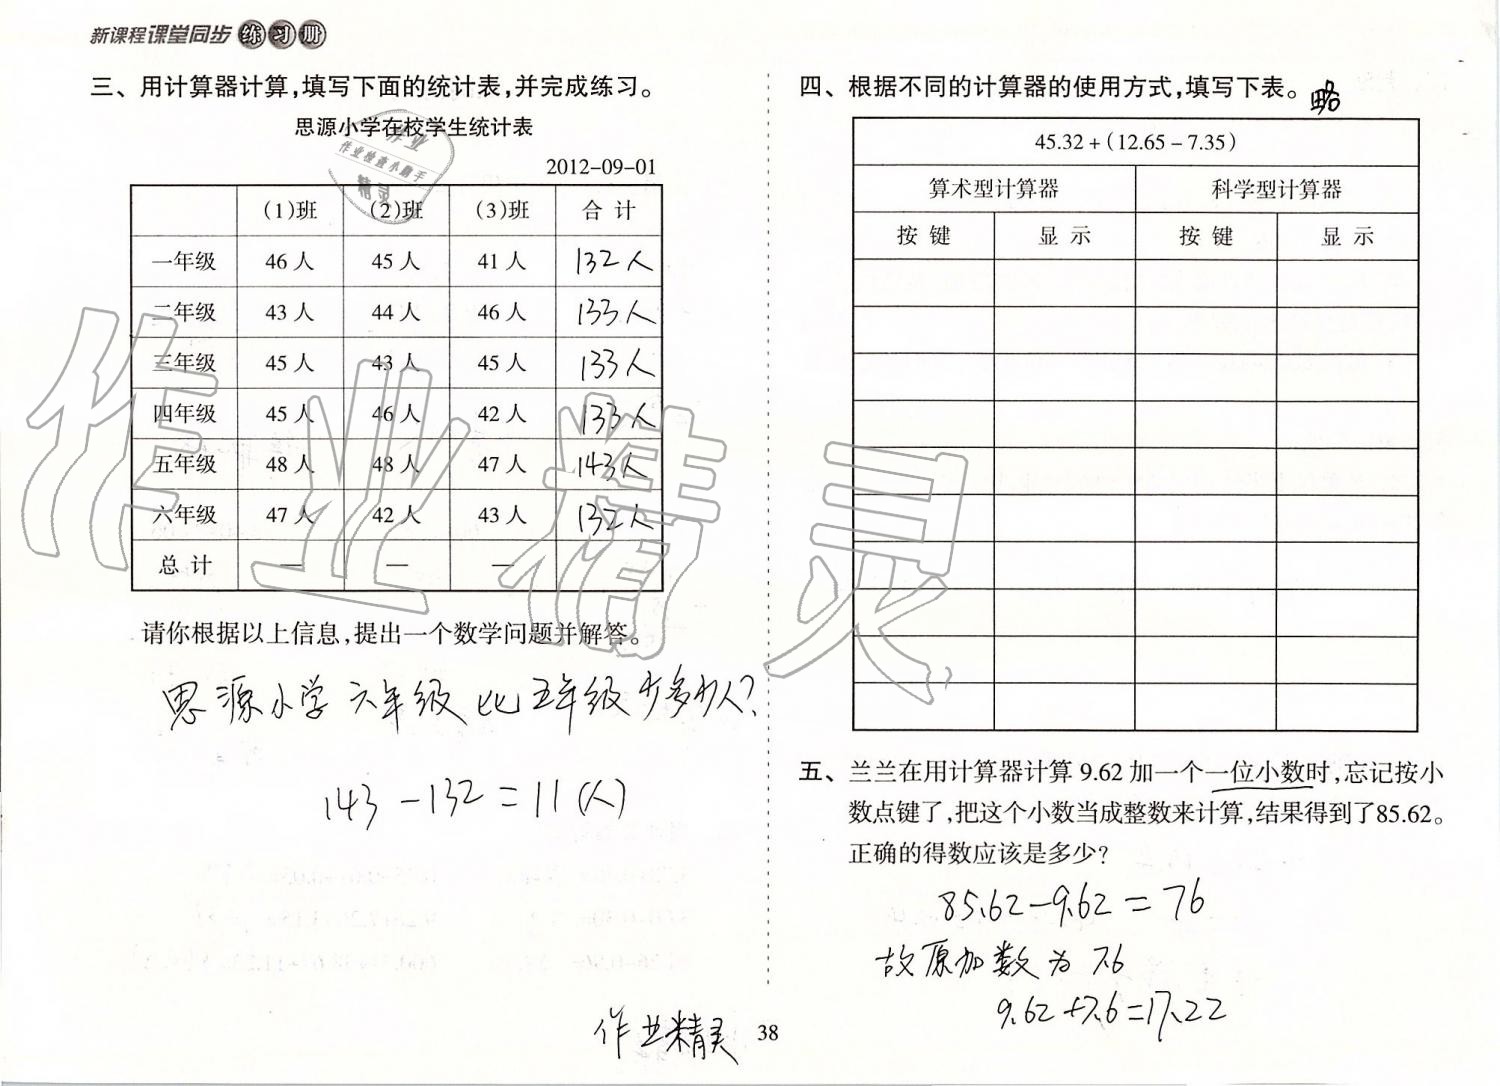 新课程课堂同步练习册
三、用计算器计算,填写下面的统计表,并完成练习。
思源小学在校学生统计表
2012-09-01
(1)班 (2)班 (3)班 合 计
一年级 46人 45人 41人 132人
二年级 43人 44人 46人 133人
三年级 45人 43人 45人 133人
四年级 45人 46人 42人 133人
五年级 48人 48人 47人 143人
六年级 47人 42人 43人 132人
总 计 — — —
请你根据以上信息,提出一个数学问题并解答。
思源小学六年级比五年级少多少人?
143-132=11(人)
四、根据不同的计算器的使用方式,填写下表。 略
45.32+(12.65-7.35)
算术型计算器 科学型计算器
按 键 显 示 按 键 显 示
五、兰兰在用计算器计算9.62加一个一位小数时,忘记按小
数点键了,把这个小数当成整数来计算,结果得到了85.62。
正确的得数应该是多少?
85.62-9.62=76
故原加数为7.6
9.62+7.6=17.22
作业精灵
38
作业
作业检查小助手
精灵
作业精灵